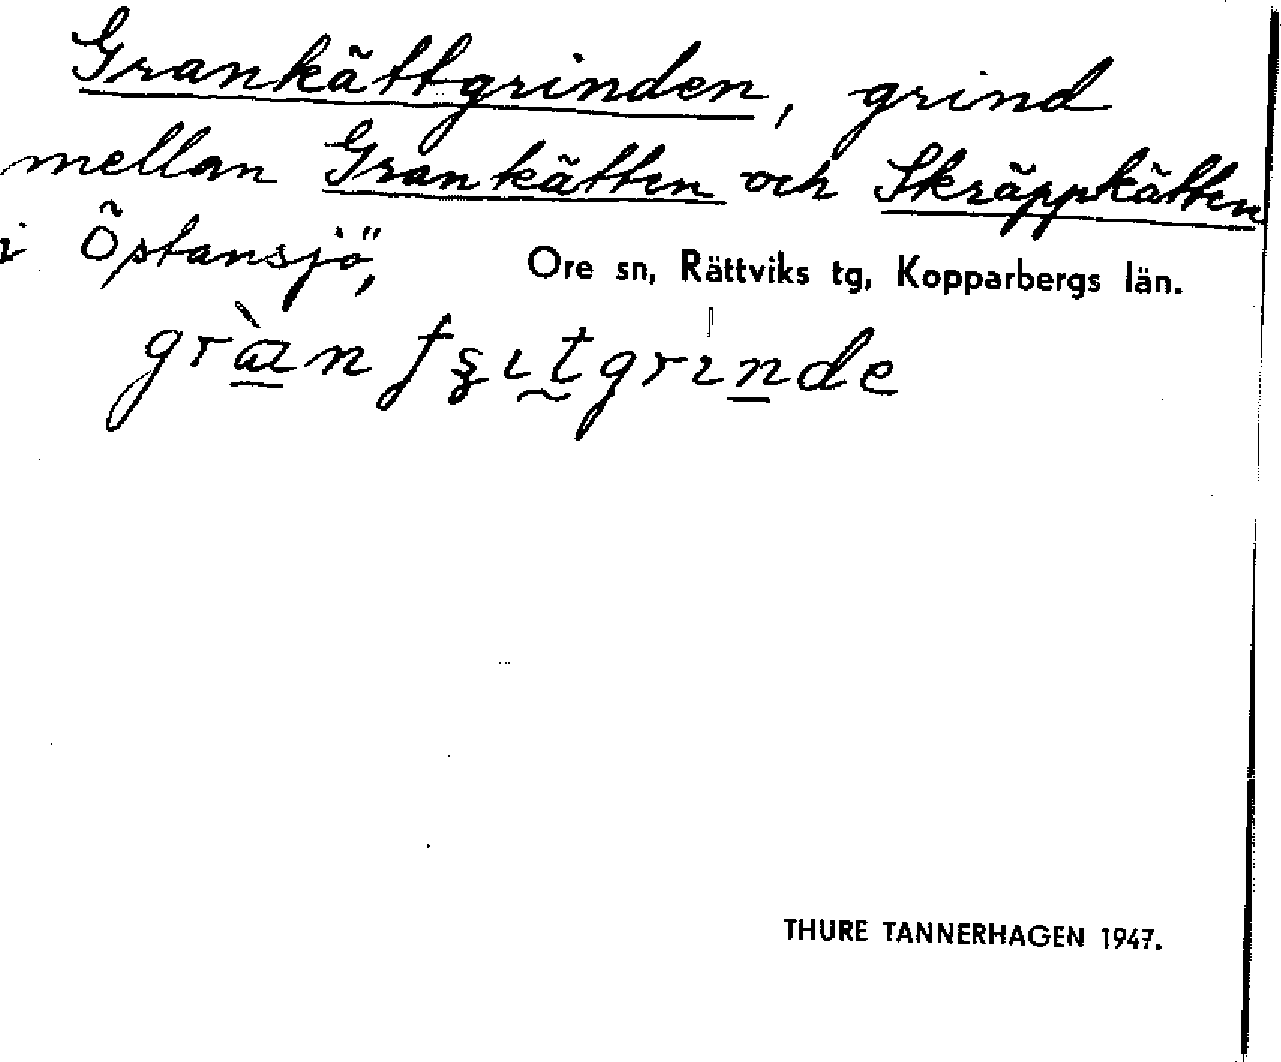 Grankättgrinden, grind
mellan Grankätten och Skräppkätten
i Östansjö,
Ore sn, Rättviks tg, Kopparbergs län.
THURE TANNERHAGEN 1947.